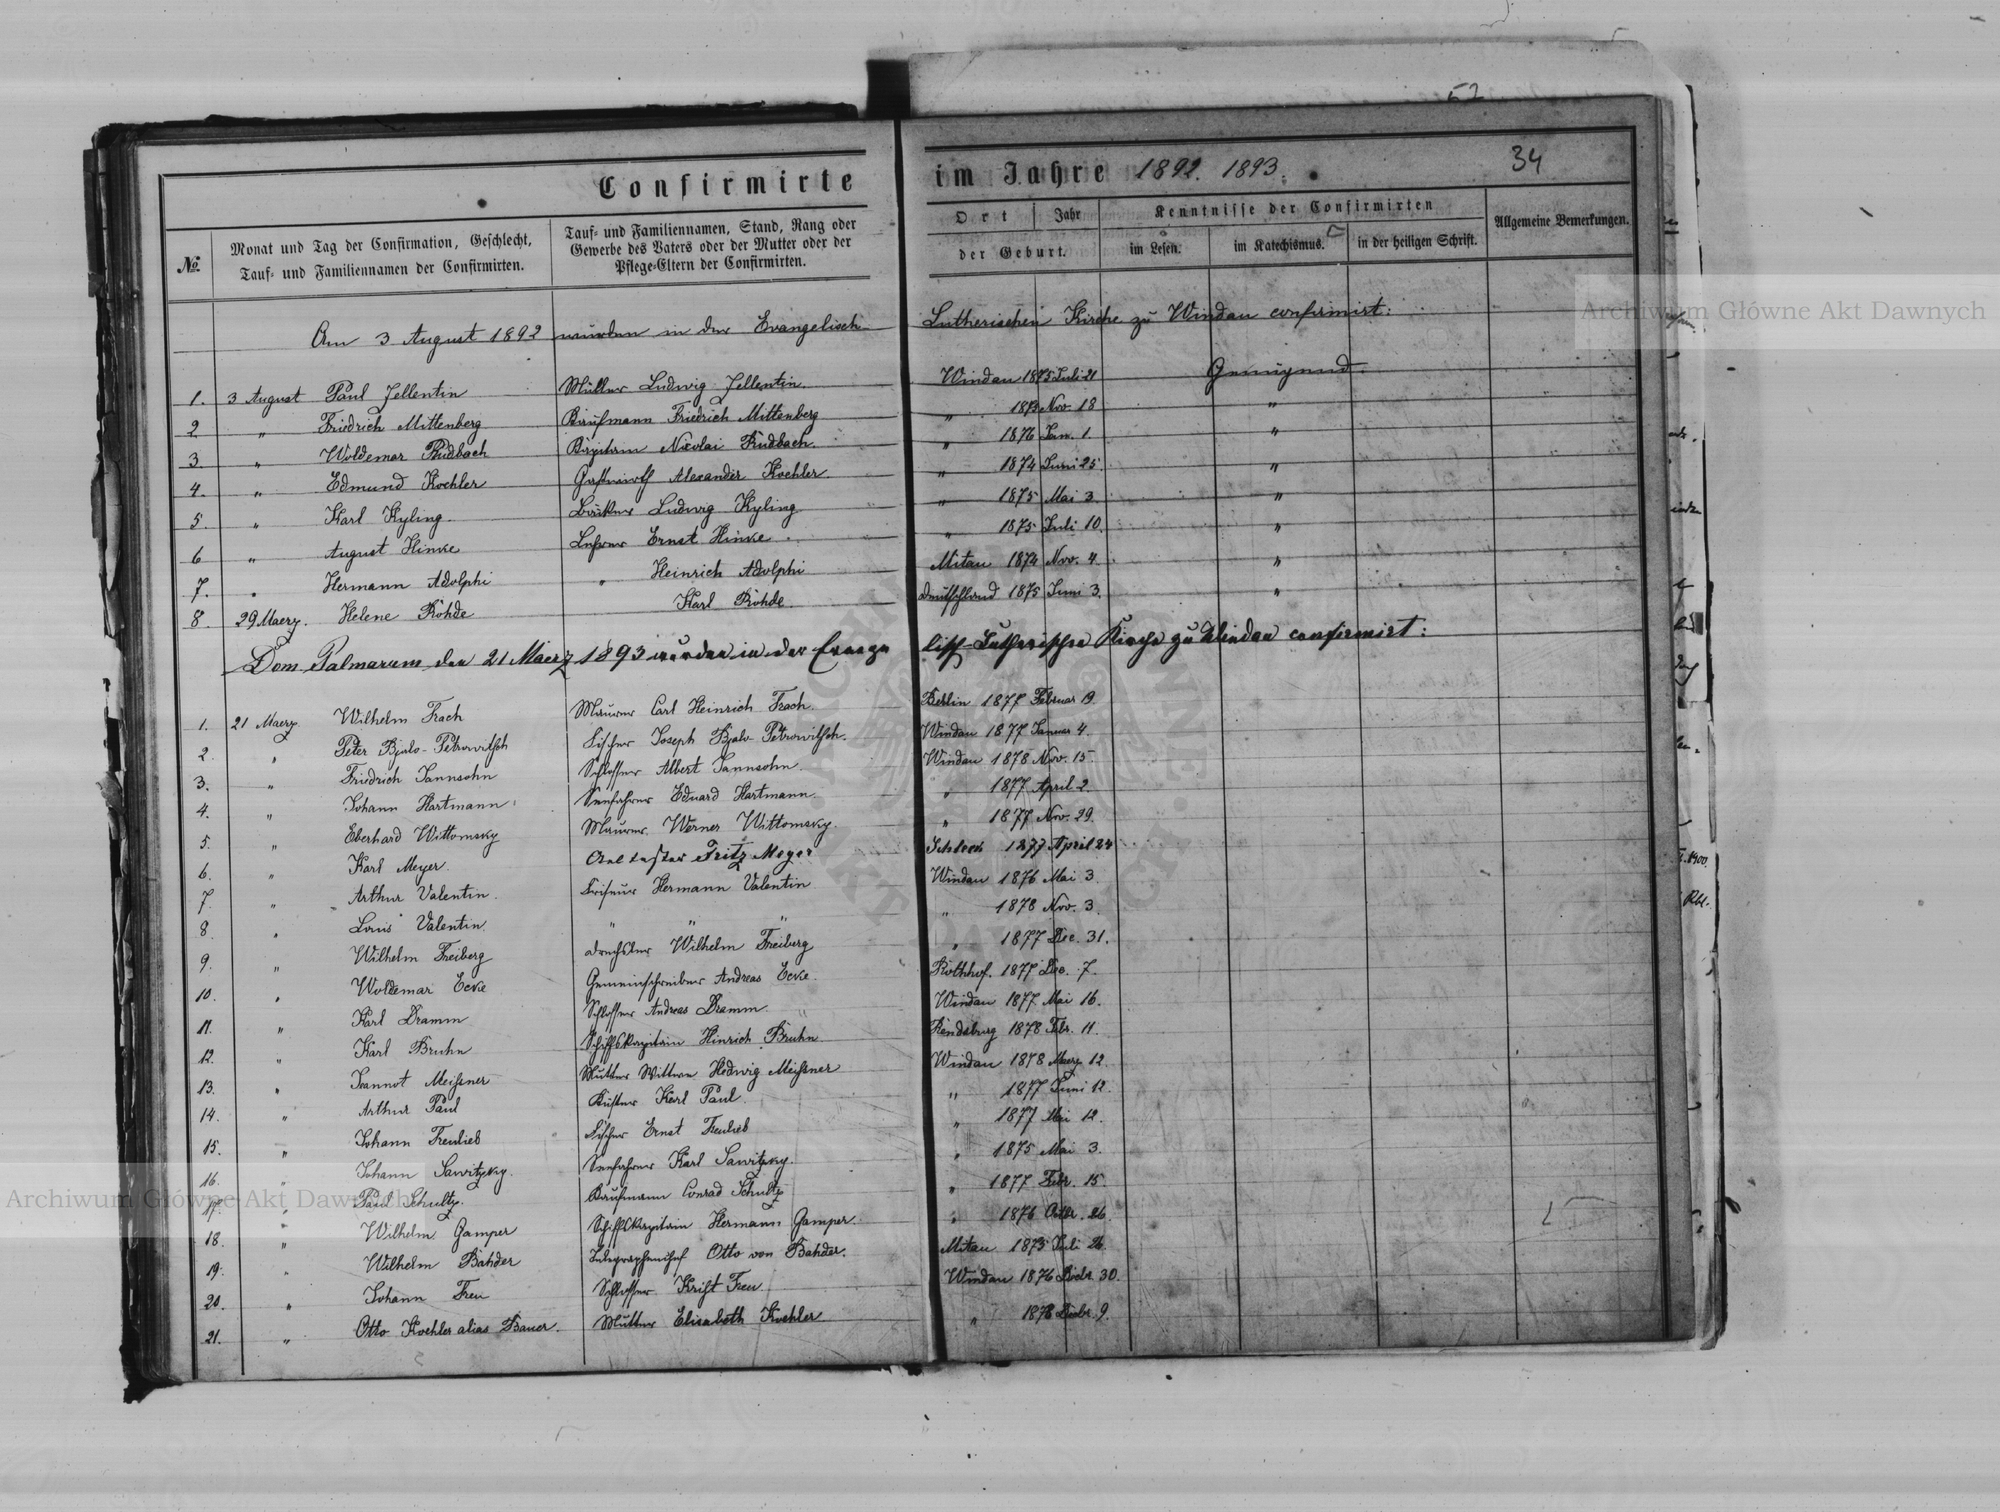 52
Confirmirte im Jahre 1892. 1893.
34
№
Monat und Tag der Confirmation, Geschlecht,
Tauf- und Familiennamen der Confirmirten.
Tauf- und Familiennamen, Stand, Rang oder
Gewerbe des Vaters oder der Mutter oder der
Pflege-Eltern der Confirmirten.
Ort | Jahr
der Geburt.
Kenntnisse der Confirmirten
im Lesen.
im Katechismus.
in der heiligen Schrift.
Allgemeine Bemerkungen.
Am 3 August 1892 wurden in der Evangelisch- Lutherischen Kirche zu Windau confirmirt:
1. 3 August Paul Jellentin Müller Ludwig Jellentin. Windau 1875 Juli 21 Genügend.
2 " Friedrich Mittenberg Kaufmann Friedrich Mittenberg " Nov. 18 "
3. " Woldemar Rudbach Kapitain Nicolai Rudbach. " 1876 Jan. 1. "
4. " Edmund Koehler Gastwirth Alexander Koehler. " 1874 Juni 25. "
5 " Karl Kyling. Bäcker Ludwig Kyling " 1875 Mai 3. "
6 " August Hinke Lehrer Ernst Hinke. " 1875 Juli 10. "
7. " Hermann Adolphi " Heinrich Adolphi Mitau 1874 Nov. 4. "
8. 29 Maerz. Helene Rohde Karl Rohde. Deutschland 1875 Juni 3. "
Dom. Palmarum den 21 Maerz 1893 wurden in der Evange lisch-Lutherischen Kirche zu Windau confirmirt:
1. 21 Maerz. Wilhelm Frach Maurer Carl Heinrich Frach. Berlin 1877 Februar 19.
2. " Peter Bjalo-Petrowitsch Fischer Joseph Bjalo-Petrowitsch. Windau 1877 Januar 4.
3. " Friedrich Jannsohn Schlosser Albert Jannsohn. Windau 1878 Nov. 15.
4. " Johann Hartmann Seefahrer Eduard Hartmann " 1877 April 2
5. " Eberhard Wittomsky Maurer Werner Wittomsky. " 1877 Nov. 29.
6. " Karl Meyer. Aeltester Fritz Meyer Schleck 1877 April 24
7. " Arthur Valentin. Friseur Hermann Valentin Windau 1876 Mai 3.
8. " Louis Valentin. " " " " 1878 Nov. 3.
9. " Wilhelm Freiberg Drechsler Wilhelm Freiberg " 1877 Dec. 31.
10. " Woldemar Ecke Gemeinschreiber Andreas Ecke. Rothhof. 1877 Dec. 7.
11. " Karl Dramm Schlosser Andreas Dramm. Windau 1877 Mai 16.
12. " Karl Bruhn Schiffskapitain Hinrich Bruhn Rendsburg 1878 Febr. 11.
13. " Jeannot Meißner Mutter Wittwe Hedwig Meißner Windau 1878 Maerz 12.
14. " Arthur Paul Küster Karl Paul. " 1877 Juni 12.
15. " Johann Treulieb Fischer Ernst Treulieb " 1877 Mai 12.
16. " Johann Sawitzky. Seefahrer Karl Sawitzky. " 1875 Mai 3.
17. " Paul Schultz. Kaufmann Conrad Schultz " 1877 Febr. 15.
18. " Wilhelm Gamper Schiffskapitain Hermann Gamper. " 1876 Octbr. 26.
19. " Wilhelm Bahder Telegraphenchef Otto von Bahder. Mitau 1875 Juli 26.
20. " Johann Treu Schlosser Krist Treu Windau 1876 Decbr. 30.
21. " Otto Koehler alias Bauer. Mutter Elisabeth Koehler " 1876 Decbr. 9.
Archiwum Główne Akt Dawnych
Archiwum Główne Akt Dawnych